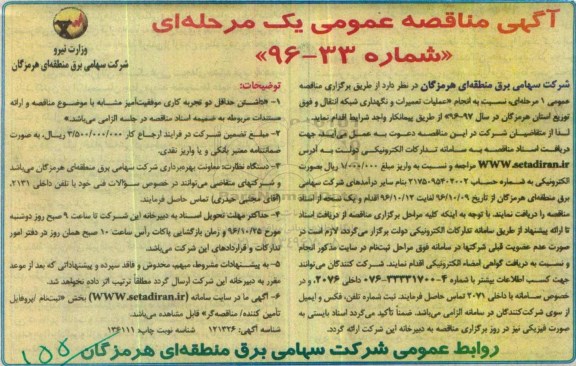 آگهی مناقصه عمومی یک مرحله‌ای
«شماره ۳۳-۹۶»
وزارت نیرو
شرکت سهامی برق منطقه‌ای هرمزگان
شرکت سهامی برق منطقه‌ای هرمزگان در نظر دارد از طریق برگزاری مناقصه
عمومی ۱ مرحله‌ای، نسبت به انجام «عملیات تعمیرات و نگهداری شبکه انتقال و فوق
توزیع استان هرمزگان در سال ۹۷-۹۶» از طریق پیمانکار واجد شرایط اقدام نماید.
لذا از متقاضیان شرکت در این مناقصه دعوت به عمل می‌آیند جهت
دریافت اسناد مناقصه به سامانه تدارکات الکترونیکی دولت به آدرس
WWW.setadiran.ir مراجعه و نسبت به واریز مبلغ ۱/۰۰۰/۰۰۰ ریال بصورت
الکترونیکی به شماره حساب ۲۱۷۵۰۹۵۴۰۲۰۰۲ بنام سایر درآمدهای شرکت سهامی
برق منطقه‌ای هرمزگان از تاریخ ۹۶/۱۰/۰۹ لغایت ۹۶/۱۰/۱۳ اقدام و یک نسخه از اسناد
مناقصه را دریافت نمایند. با توجه به اینکه کلیه مراحل برگزاری مناقصه از دریافت اسناد
تا ارائه پیشنهاد از طریق سامانه تدارکات الکترونیکی دولت برگزار می‌گردد، لازم است در
صورت عدم عضویت قبلی شرکتها در سامانه فوق مراحل ثبت‌نام در سایت مذکور انجام
و نسبت به دریافت گواهی امضاء الکترونیکی اقدام نمایند. شرکت کنندگان می‌توانند
جهت کسب اطلاعات بیشتر با شماره ۴-۳۳۳۳۱۷۰۰-۰۷۶ داخلی ۲۰۷۶، و در
خصوص سامانه با داخلی ۲۰۷۱ تماس حاصل فرمایند. ثبت شماره تلفن، فکس و ایمیل
از سوی شرکت‌کنندگان در سامانه الزامی می‌باشد. ضمناً تأکید می‌گردد اسناد بایستی به
صورت فیزیکی نیز در روز برگزاری مناقصه به دبیرخانه این شرکت ارائه گردد.
توضیحات:
۱- «داشتن حداقل دو تجربه کاری موفقیت‌آمیز مشابه با موضوع مناقصه و ارائه
مستندات مربوطه به ضمیمه اسناد مناقصه در جلسه الزامی می‌باشد.»
۲- مبلغ تضمین شرکت در فرایند ارجاع کار ۳/۵۰۰/۰۰۰/۰۰۰ ریال، به صورت
ضمانتنامه معتبر بانکی و یا واریز نقدی.
۳- دستگاه نظارت: معاونت بهره‌برداری شرکت سهامی برق منطقه‌ای هرمزگان می‌باشد
و شرکتهای متقاضی می‌توانند در خصوص سؤالات فنی خود با تلفن داخلی ۲۱۳۱،
(آقای مجتبی حیدری) تماس حاصل فرمایند.
۴- حداکثر مهلت تحویل اسناد به دبیرخانه این شرکت تا ساعت ۹ صبح روز دوشنبه
مورخ ۹۶/۱۰/۲۵ و زمان بازگشایی پاکات رأس ساعت ۱۰ صبح همان روز در دفتر امور
تدارکات و قراردادهای این شرکت می‌باشد.
۵- به پیشنهادات مشروط، مبهم، مخدوش و فاقد سپرده و پیشنهاداتی که بعد از موعد
مقرر به دبیرخانه این شرکت ارسال گردد مطلقاً ترتیب اثر داده نخواهد شد.
۶- آگهی ما در سایت سامانه (WWW.setadiran.ir) بخش «ثبت‌نام/پروفایل
تأمین کننده/مناقصه‌گر» قابل مشاهده می‌باشد.
شناسه آگهی: ۱۲۱۳۲۶ شناسه نوبت چاپ: ۱۳۶۱۱۱
روابط عمومی شرکت سهامی برق منطقه‌ای هرمزگان